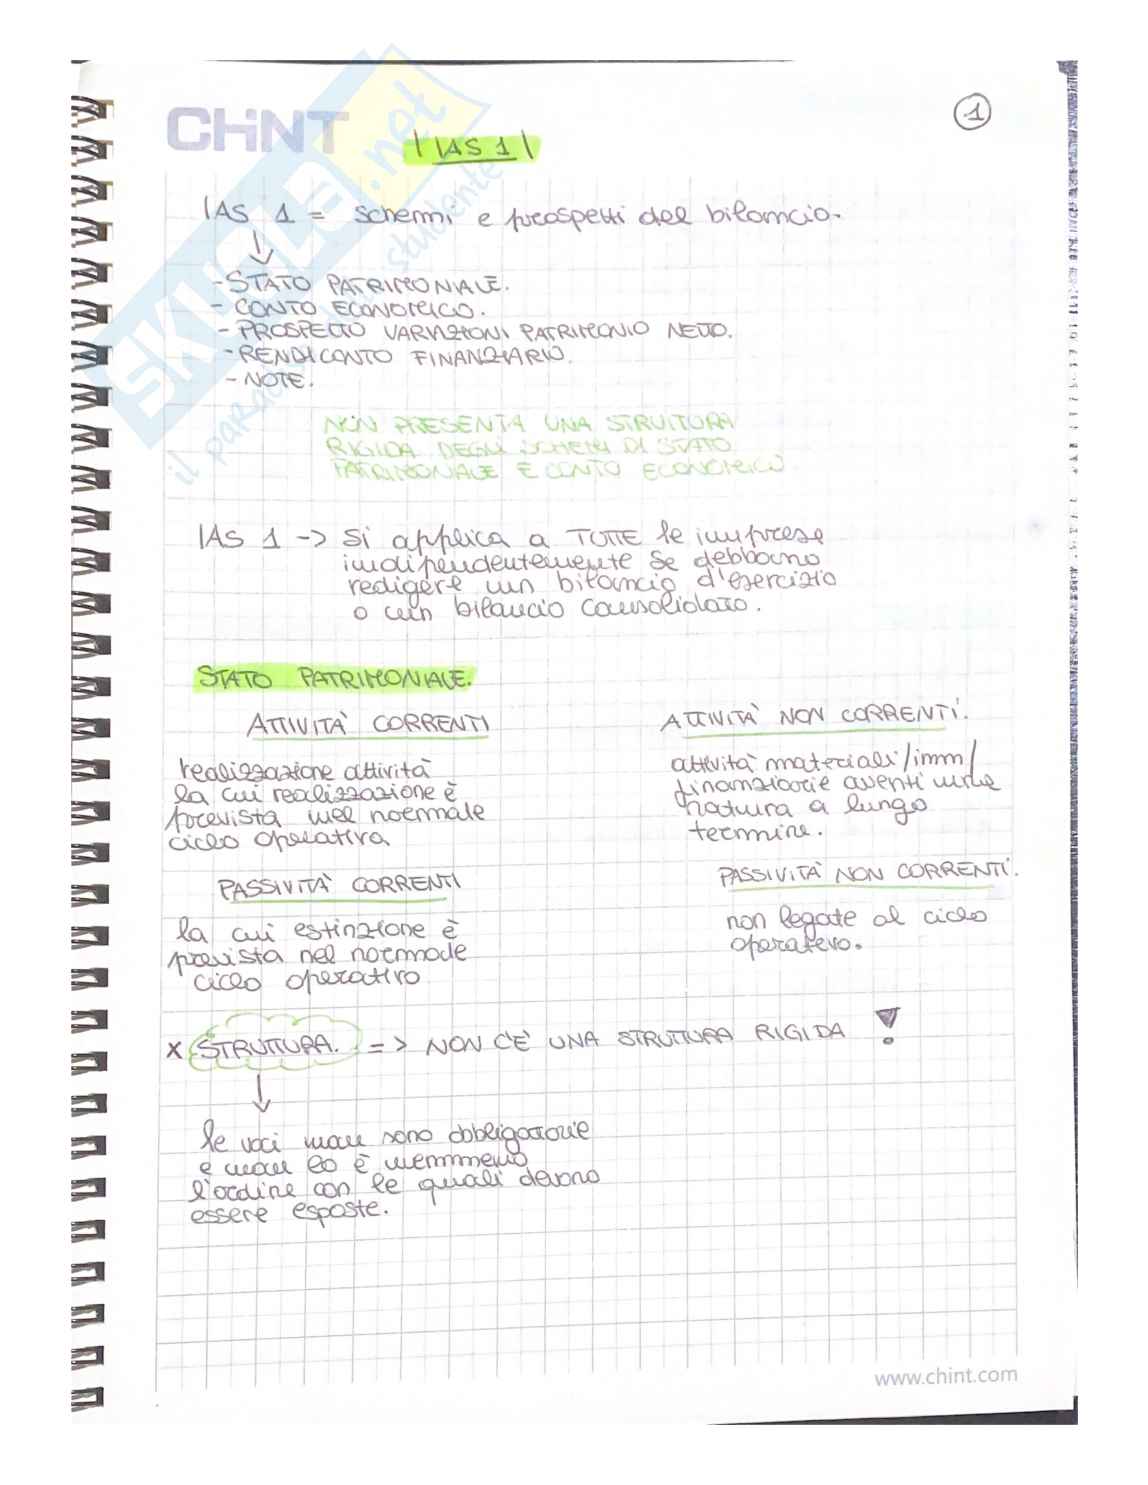 CHINT
1
IAS 1
IAS 1 = schemi e prospetti del bilancio.
- STATO PATRIMONIALE.
- CONTO ECONOMICO.
- PROSPETTO VARIAZIONI PATRIMONIO NETTO.
- RENDICONTO FINANZIARIO.
- NOTE.
NON PRESENTA UNA STRUTTURA
RIGIDA DEGLI SCHEMI DI STATO
PATRIMONIALE E CONTO ECONOMICO.
IAS 1 -> si applica a TUTTE le imprese
indipendentemente se debbano
redigere un bilancio d'esercizio
o un bilancio consolidato.
STATO PATRIMONIALE.
ATTIVITÀ CORRENTI
ATTIVITÀ NON CORRENTI.
realizzazione attività
la cui realizzazione è
prevista nel normale
ciclo operativa
attività materiali/imm/
finanziarie aventi una
natura a lungo
termine.
PASSIVITÀ CORRENTI
PASSIVITÀ NON CORRENTI.
la cui estinzione è
prevista nel normale
ciclo operativo
non legate al ciclo
operativo.
x STRUTTURA. => NON C'È UNA STRUTTURA RIGIDA !
le voci non sono obbligatorie
e non lo è nemmeno
l'ordine con le quali devono
essere esposte.
www.chint.com
SKUOLA.net